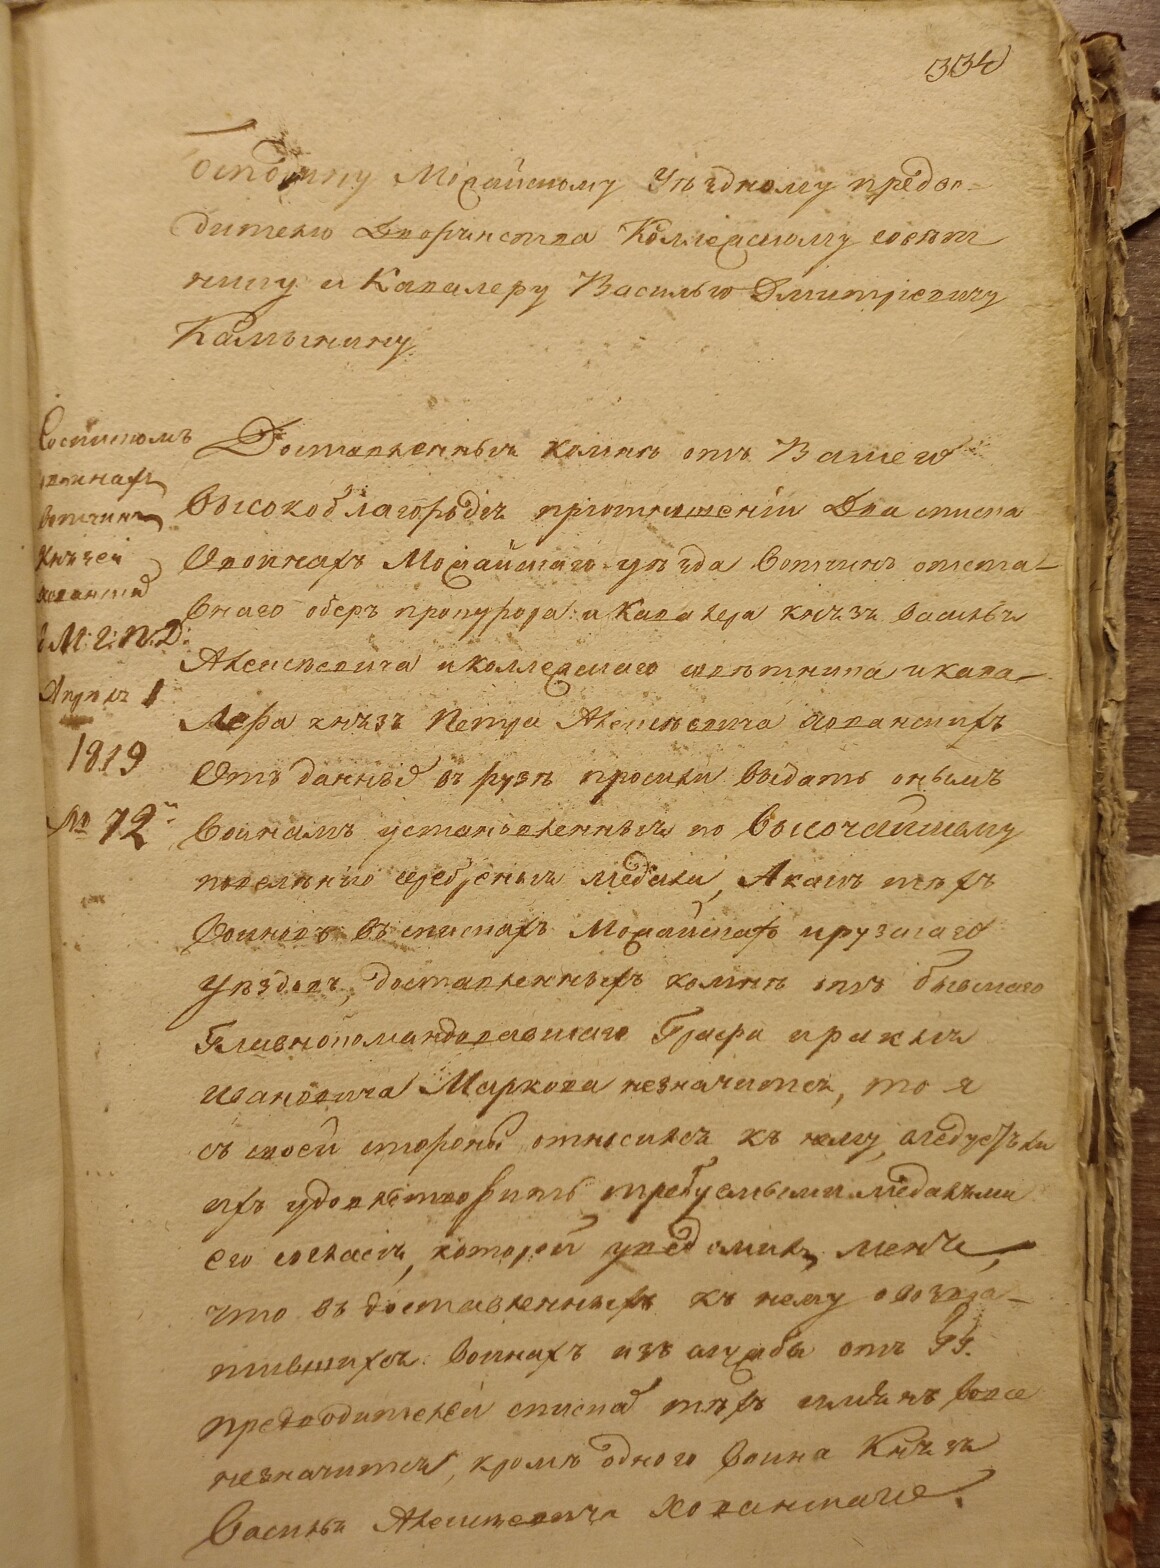 334
Господину Можайскому Уѣздному предво-
дителю Дворянства Коллежскому совѣт
нику и Кавалеру Василью Дмитріевичу
Камынину
Доставленныя комнѣ отъ Вашего
Высокоблагородія приотношеніи Два списка
Овоинахъ Можайскаго уѣзда вотчинъ отста-
внаго оберъ прокурора и Кавалера князя Василья
Алексѣевича и коллежскаго совѣтника и кава-
лера князя Петра Алексѣевича Хованскихъ
Отъ данные въ рузѣ просили выдать онымъ
Воинамъ установленныя по Высочайшему
повелѣнію серебреныя медали, Акакъ тѣхъ
Воиновъ въ спискахъ Можайскаго ирузскаго
Уѣздовъ, доставленныхъ комнѣ отъ бывшаго
Главнокомандовавшаго Графа ираклія
ивановича Маркова незначится, то я
съ своей стороны относился къ нему, следуетъли
ихъ удовлетворить требуемыми медалями
его согласія, которой уведомилъ меня,
что въ доставленныхъ къ нему овозвра-
тившихся воинахъ изъ службы отъ ГГ.
предводителей списка тѣхъ имянъ вовсе
незначится, кромѣ одного воина Князя
Василья Алексѣевича хованскаго.
Соспискомъ
овоинахъ
вотчинъ
Князей
хованских
М: У: П: Д:
Апрѣля 1
1819
№ 72й